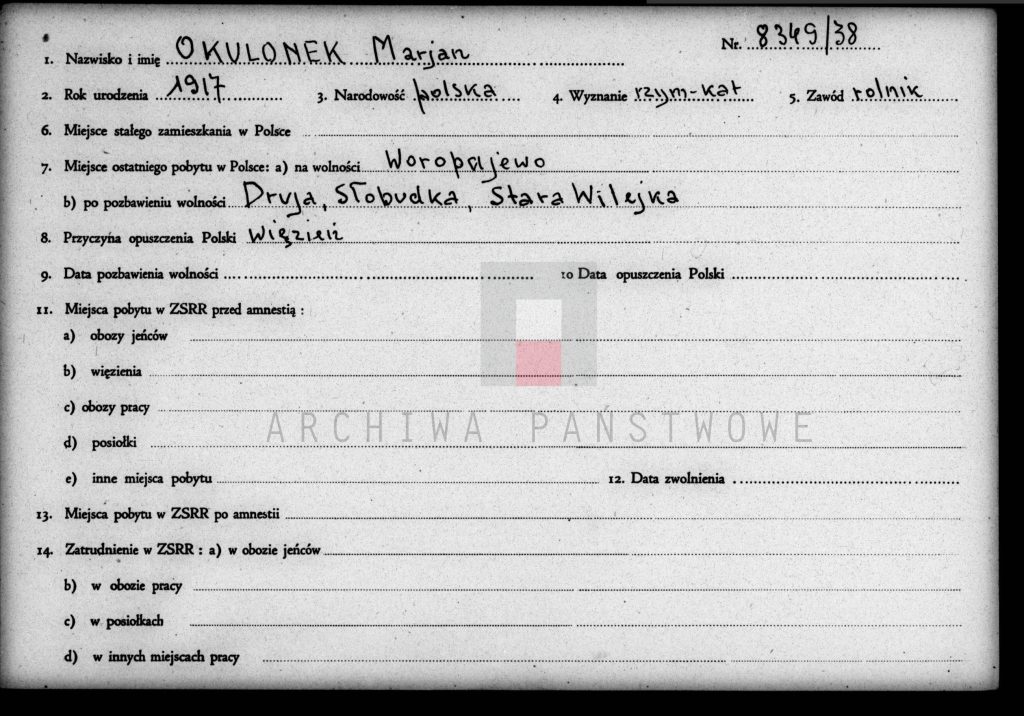 Nr. 8349/38
1. Nazwisko i imię OKULONEK Marjan
2. Rok urodzenia 1917 3. Narodowość polska 4. Wyznanie rzym-kat 5. Zawód rolnik
6. Miejsce stałego zamieszkania w Polsce
7. Miejsce ostatniego pobytu w Polsce: a) na wolności Woropajewo
b) po pozbawieniu wolności Druja, Słobudka, Stara Wilejka
8. Przyczyna opuszczenia Polski Więzień
9. Data pozbawienia wolności 10 Data opuszczenia Polski
11. Miejsca pobytu w ZSRR przed amnestią :
a) obozy jeńców
b) więzienia
c) obozy pracy
ARCHIWA PAŃSTWOWE
d) posiołki
e) inne miejsca pobytu 12. Data zwolnienia
13. Miejsca pobytu w ZSRR po amnestii
14. Zatrudnienie w ZSRR : a) w obozie jeńców
b) w obozie pracy
c) w posiołkach
d) w innych miejscach pracy